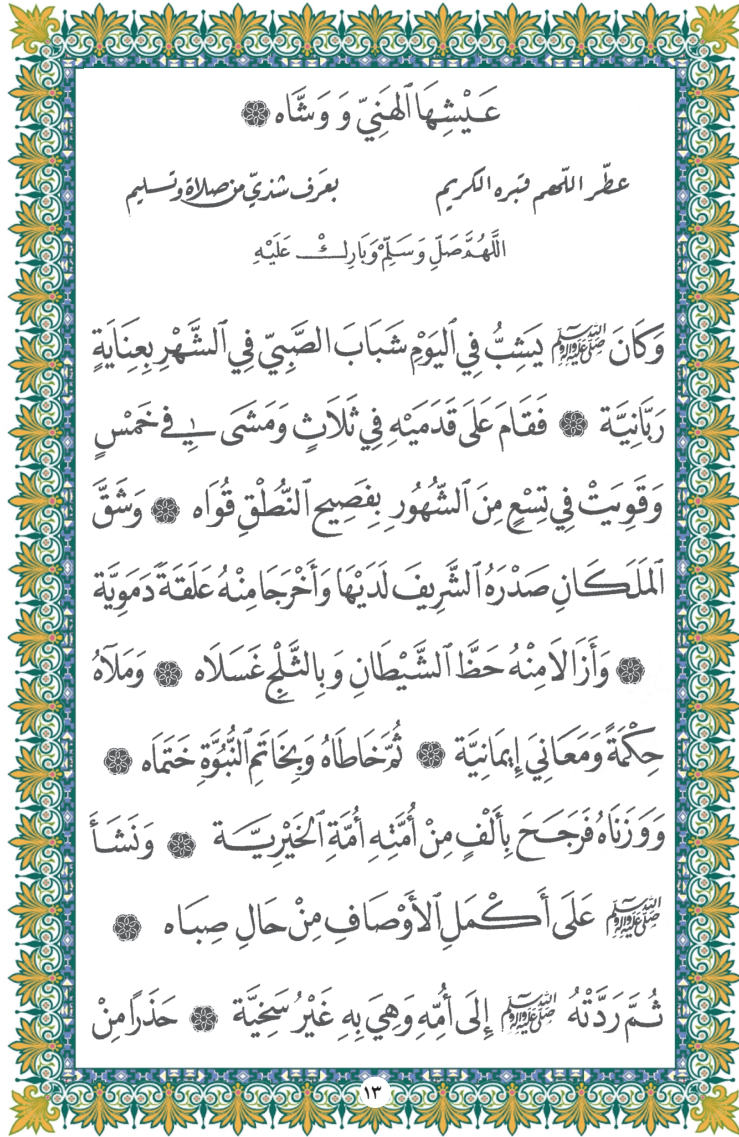 عَيْشِهَا ٱلْهَنِيِّ وَ وَشَّاه ۞
عطّر اللّهم قبره الكريم بعَرف شذيّ من صلاة وتسليم
اللَّهُمَّ صَلِّ وَسَلِّمْ وَبَارِكْ عَلَيْهِ
وَكَانَ ﷺ يَشِبُّ فِي ٱلْيَوْمِ شَبَابَ الصَّبِيِّ فِي ٱلشَّهْرِ بِعِنَايَةٍ
رَبَّانِيَّة ۞ فَقَامَ عَلَى قَدَمَيْهِ فِي ثَلَاثٍ وَمَشَى فِي خَمْسٍ
وَقَوِيَتْ فِي تِسْعٍ مِنَ ٱلشُّهُورِ بِفَصِيحِ ٱلنُّطْقِ قُوَاه ۞ وَشَقَّ
ٱلْمَلَكَانِ صَدْرَهُ ٱلشَّرِيفَ لَدَيْهَا وَأَخْرَجَا مِنْهُ عَلَقَةً دَمَوِيَّة
۞ وَأَزَالَا مِنْهُ حَظَّ ٱلشَّيْطَانِ وَبِالثَّلْجِ غَسَلَاه ۞ وَمَلَآهُ
حِكْمَةً وَمَعَانِيَ إِيمَانِيَّة ۞ ثُمَّ خَاطَاهُ وَبِخَاتَمِ ٱلنُّبُوَّةِ خَتَمَاه ۞
وَوَزَنَاهُ فَرَجَحَ بِأَلْفٍ مِنْ أُمَّتِهِ أُمَّةِ ٱلْخَيْرِيَّة ۞ وَنَشَأَ
ﷺ عَلَى أَكْمَلِ ٱلْأَوْصَافِ مِنْ حَالِ صِبَاه ۞
ثُمَّ رَدَّتْهُ ﷺ إِلَى أُمِّهِ وَهِيَ بِهِ غَيْرُ سَخِيَّة ۞ حَذَرًا مِنْ
١٣